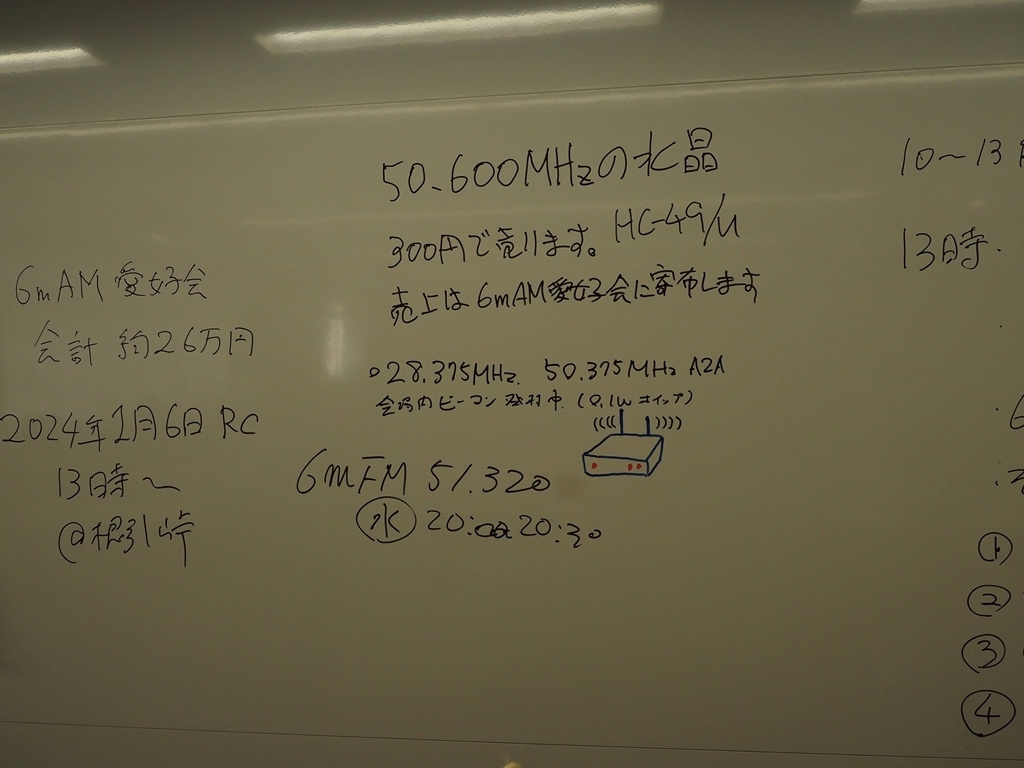 6mAM 愛好会
会計 約26万円
2024年1月6日 RC
13時〜
@根引峠
50.600MHzの水晶
300円で売ります。HC-49/U
売上は6mAM愛好会に寄布します
○28.375MHz. 50.375MHz A2A
会場内ビーコン 発射中.(0.1W ホイップ)
6mFM 51.320
水 20:00 20:30
10〜13
13時.
①
②
③
④